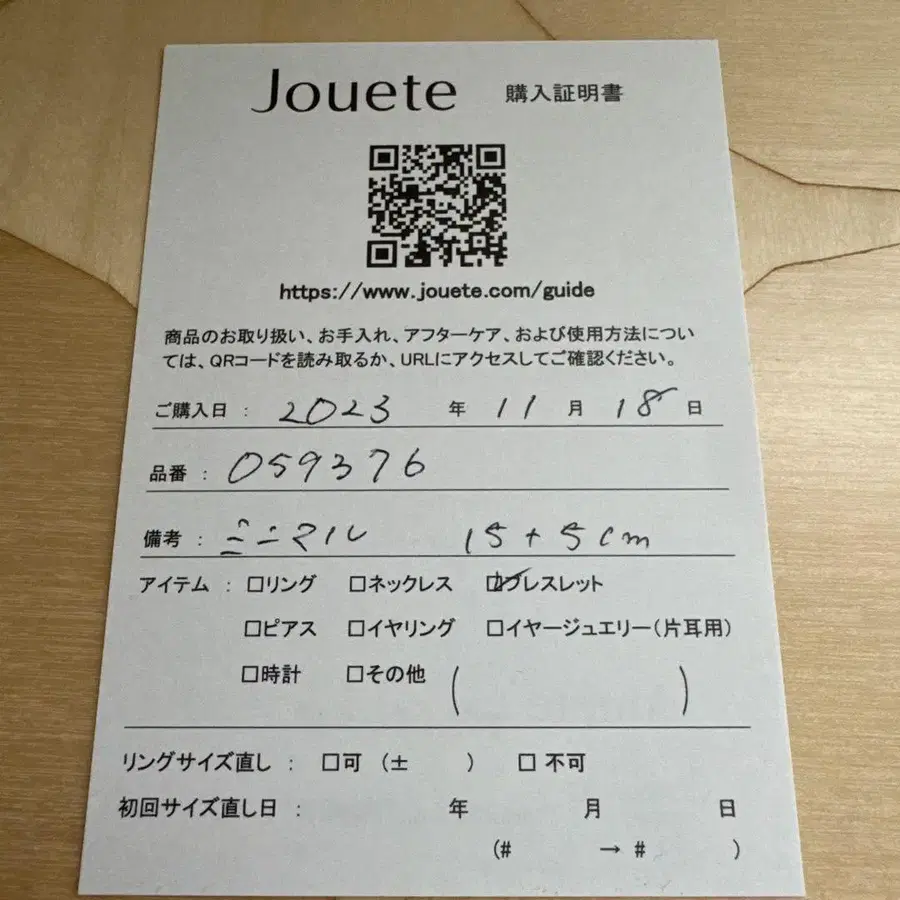 Jouete 購入証明書
https://www.jouete.com/guide
商品のお取り扱い、お手入れ、アフターケア、および使用方法につい
ては、QRコードを読み取るか、URLにアクセスしてご確認ください。
ご購入日 : 2023 年 11 月 18 日
品番 : 059376
備考 : ミニマル 15+5cm
アイテム : □リング □ネックレス ☑ブレスレット
□ピアス □イヤリング □イヤージュエリー(片耳用)
□時計 □その他 ( )
リングサイズ直し : □可 (± ) □ 不可
初回サイズ直し日 : 年 月 日
(# → # )